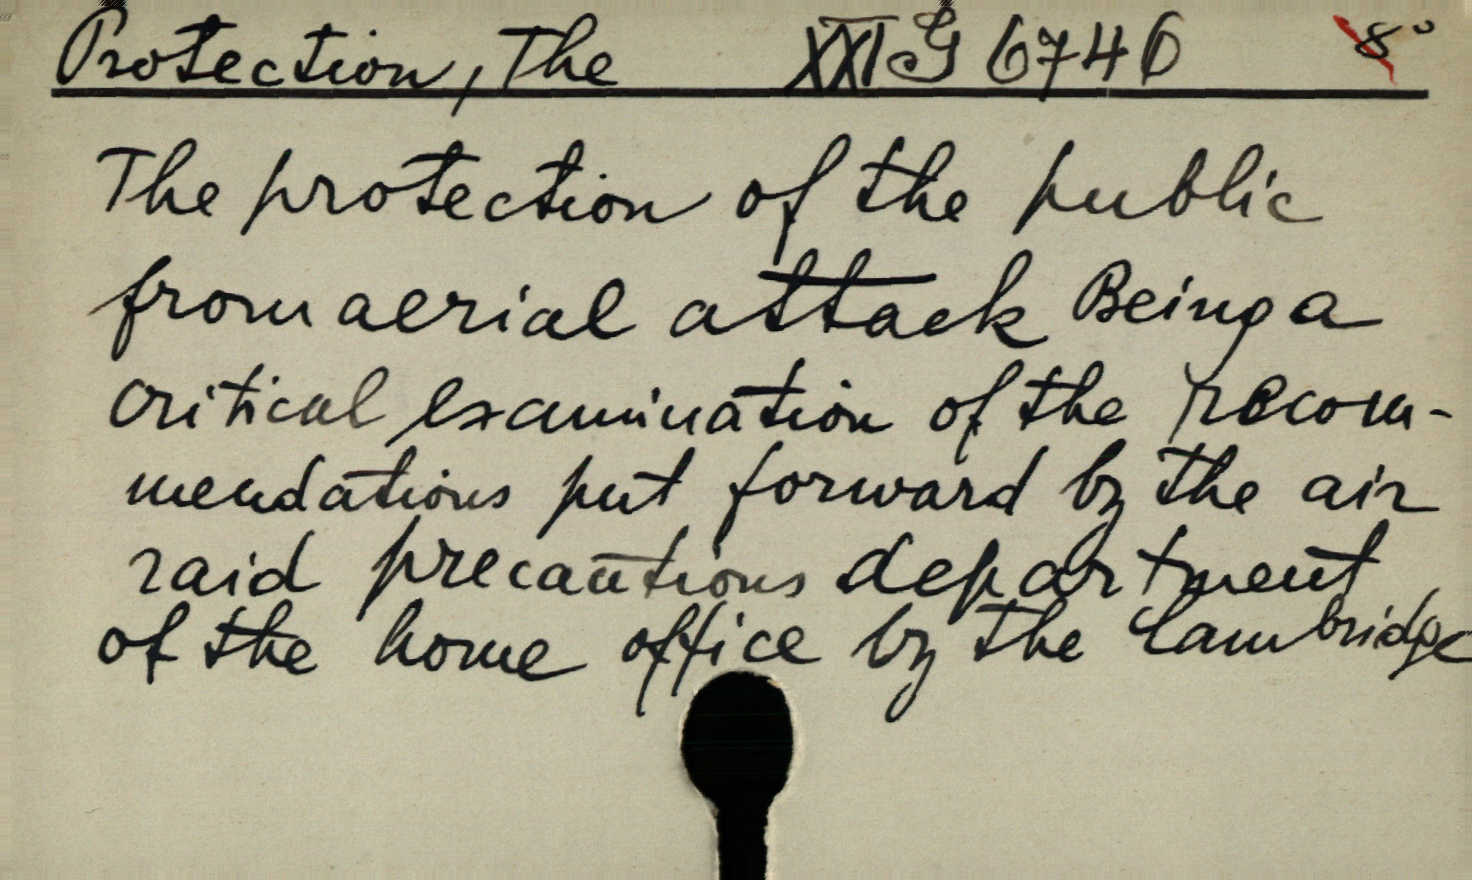 Protection, The XXI G 6746 8°
The protection of the public
from aerial attack Being a
critical examination of the recom-
mendations put forward by the air
raid precautions department
of the home office by the Cambridge